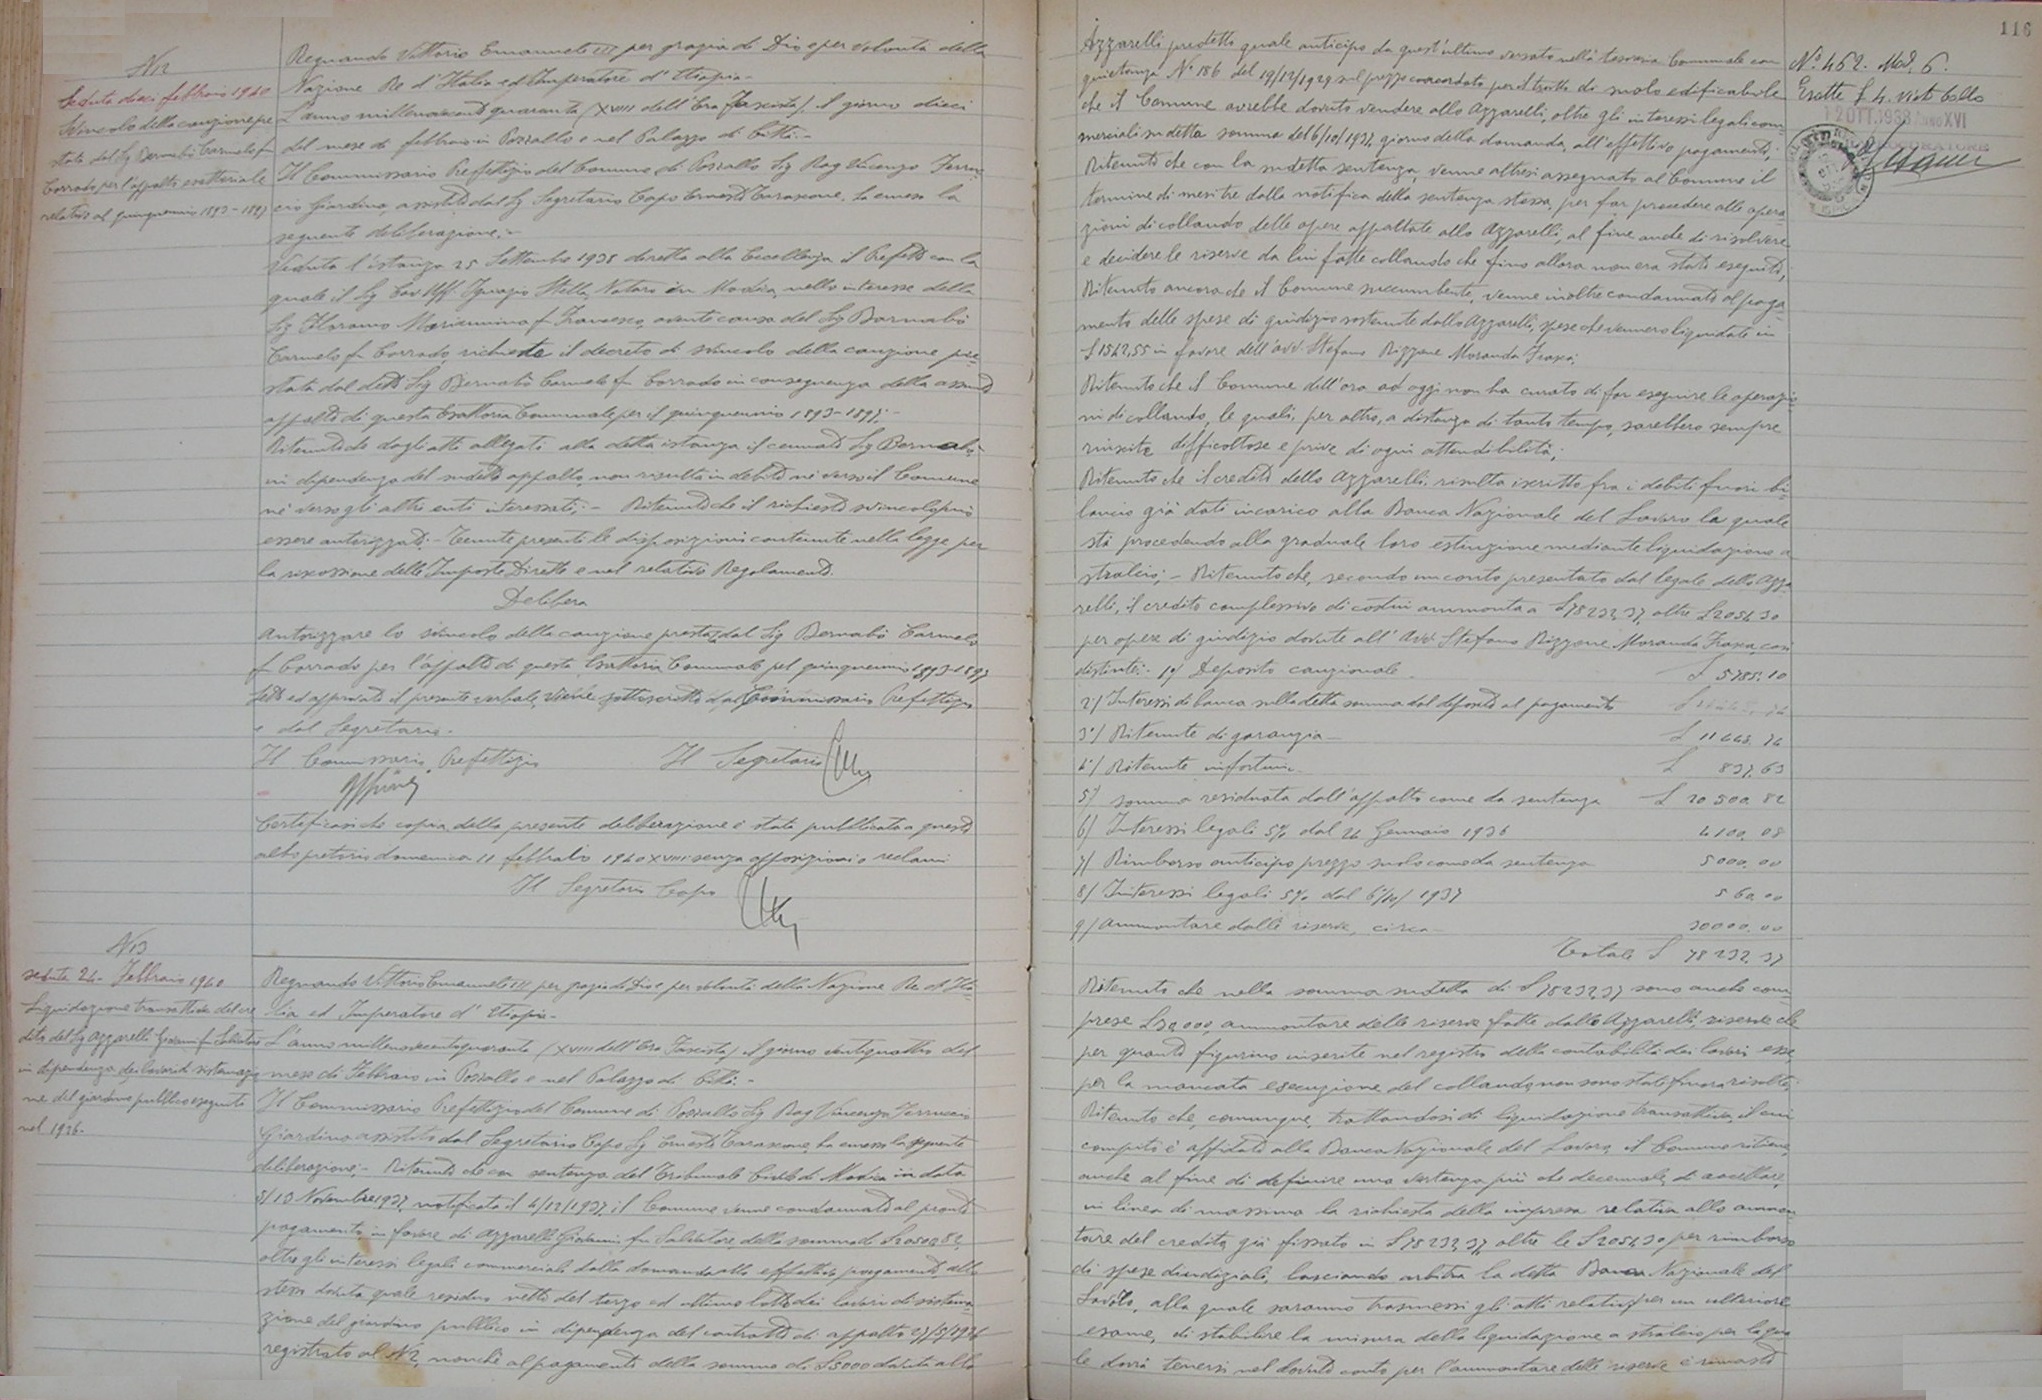 N 12
Seduta dieci febbraio 1940
Svincolo della cauzione pre
stata dal Sg Bernabò Carmelo fu
Corrado per l'appalto esattoriale
relativo al quinquennio 1893-1897
Regnando Vittorio Emanuele III per grazia di Dio e per volontà della
Nazione Re d'Italia ed Imperatore d'Etiopia.-
L'anno millenovecentoquaranta (XVIII dell'Era Fascista) il giorno dieci
del mese di febbraio in Pozzallo e nel Palazzo di Città.-
Il Commissario Prefettizio del Comune di Pozzallo Sig Rag Vincenzo Ferruc
cio Giardina, assistito dal Sg Segretario Capo Ernesto Tarascone, ha emesso la
seguente deliberazione.-
Veduta l'istanza 25 Settembre 1938 diretta alla Eccellenza il Prefetto con la
quale il Sg Cav Uff. Ignazio Stella, Notaro in Modica, nello interesse della
Sg Mariannina fu Francesco, avente causa del Sg Bernabò
Carmelo fu Corrado richiede il decreto di svincolo della cauzione pre-
stata dal detto Sig Bernabò Carmelo fu Corrado in conseguenza della assunto
appalto di questa Esattoria Comunale per il quinquennio 1893-1897.-
Ritenuto che dagli atti allegati alla detta istanza il cennato Sg Bernabò
in dipendenza del sudetto appalto, non risulta in debito nè verso il Comune
nè verso gli altri enti interessati;- Ritenuto che il richiesto svincolo può
essere autorizzato;- Tenute presenti le disposizioni contenute nella legge per
la riscossione delle Imposte Dirette e nel relativo Regolamento.
Delibera
Autorizzare lo svincolo della cauzione prestata dal Sig Bernabò Carmelo
fu Corrado per l'appalto di questa Esattoria Comunale pel quinquennio 1893-1897
Letto ed approvato il presente verbale, viene sottoscritto dal Commissario Prefettizio
e dal Segretario.-
Il Commissario Prefettizio Il Segretario
Certificasi che copia della presente deliberazione è stata pubblicata a questo
albo pretorio domenica 11 febbraio 1940 XVIII senza opposizioni o reclami
Il Segretario Capo
N 13
seduta 24 - Febbraio 1940
Liquidazione transattiva del cre
dito del Sg Azzarelli Giovanni fu Salvatore
in dipendenza dei lavori di sistemazio
ne del giardino pubblico eseguiti
nel 1936.
Regnando Vittorio Emanuele III per grazia di Dio e per volontà della Nazione Re d'Ita-
lia ed Imperatore d'Etiopia.-
L'anno millenovecentoquaranta (XVIII dell'Era Fascista) il giorno ventiquattro del
mese di Febbraio in Pozzallo e nel Palazzo di Città.-
Il Commissario Prefettizio del Comune di Pozzallo Sg Rag Vincenzo Ferruccio
Giardina assistito dal Segretario Capo Sg Ernesto Tarascone, ha emesso la seguente
deliberazione;- Ritenuto che con sentenza del Tribunale Civile di Modica in data
5/13 Novembre 1937, notificata il 4/12/1937, il Comune venne condannato al pronto
pagamento in favore di Azzarelli Giovanni fu Salvatore, della somma di £ 20500,82,
oltre gli interessi legali commerciali dalla domanda allo effettivo pagamento, allo
stesso dovuta quale residuo netto del terzo ed ultimo lotto dei lavori di sistema-
zione del giardino pubblico in dipendenza del contratto di appalto
registrato al N 2, nonchè al pagamento della somma di £ 5000 dovuta allo
116
Azzarelli predetto quale anticipo da quest'ultimo versato nella tesoreria Comunale con
quietanza N° 186 del 19/12/1929 sul prezzo concordato per il tratto di suolo edificabile
che il Comune avrebbe dovuto vendere allo Azzarelli, oltre gli interessi legali com-
merciali su detta somma dal 6/10/1937, giorno della domanda, all'effettivo pagamento;
Ritenuto che con la sudetta sentenza, venne altresì assegnato al Comune il
termine di mesi tre dalla notifica della sentenza stessa, per far procedere alle opera
zioni di collaudo delle opere appaltate allo Azzarelli, al fine anche di risolvere
e decidere le riserve da lui fatte collaudo che fino allora non era stato eseguito;
Ritenuto ancora che il Comune soccumbente, venne inoltre condannato al paga-
mento delle spese di giudizio sostenute dallo Azzarelli, spese che vennero liquidate in
£ 1542,55 in favore dell'avv Stefano Rizzone Moranda Frasca;
Ritenuto che il Comune dell'ora ad oggi non ha curato di far eseguire le operazio-
ni di collaudo, le quali, per altro, a distanza di tanto tempo, sarebbero sempre
riuscite difficoltose e prive di ogni attendibilità;
Ritenuto che il credito dello Azzarelli, risulta iscritto fra i debiti fuori bi-
lancio già dati in carico alla Banca Nazionale del Lavoro la quale
sta procedendo alla graduale loro estinzione mediante liquidazione a
stralcio;- Ritenuto che, secondo un conto presentato dal legale dello Azza
relli, il credito complessivo di costui ammonta a £ 78232,37, oltre £ 2054,30
per opere di giudizio dovute all'Avv Stefano Rizzone Moranda Frasca, così
distinte:- 1°/ Deposito cauzionale £ 5785,10
2°/ Interessi di banca sulla detta somma dal deposito al pagamento £
3°/ Ritenute di garanzia - £ 11448,74
4°/ Ritenute infortuni - £ 837,63
5°/ somma residuata dall'appalto come da sentenza £ 20500,82
6/ Interessi legali 5% dal 24 Gennaio 1936 4100,08
7/ Rimborso anticipo prezzo suolo come da sentenza 5000,00
8/ Interessi legali 5% dal 6/10/1937 560,00
9/ ammontare delle riserve, circa 30000,00
Totale £ 78232,37
Ritenuto che nella somma sudetta di £ 78232,37 sono anche com-
prese £ 30.000, ammontare delle riserve fatte dallo Azzarelli, riserve che
per quanto figurino inserite nel registro della contabilità dei lavori, esse
per la mancata esecuzione del collaudo, non sono state finora risolte;
Ritenuto che, comunque, trattandosi di liquidazione transattiva, il cui
compito è affidato alla Banca Nazionale del Lavoro, il Comune ritiene,
anche al fine di definire una vertenza più che decennale, di accettare,
in linea di massima la richiesta della impresa relativa allo ammon-
tare del credito, già fissato in £ 78232,37, oltre le £ 2054,30 per rimborso
di spese giudiziali, lasciando arbitra la detta Banca Nazionale del
Lavoro, alla quale saranno trasmessi gli atti relativi per un ulteriore
esame, di stabilire la misura della liquidazione a stralcio per la qua
le dovrà tenersi nel dovuto conto per l'ammontare delle riserve è rimasto
N° 462. Mod. 6.
Esatte £ 4. visto bollo
12 OTT. 1938 Anno XVI
IL PROCURATORE